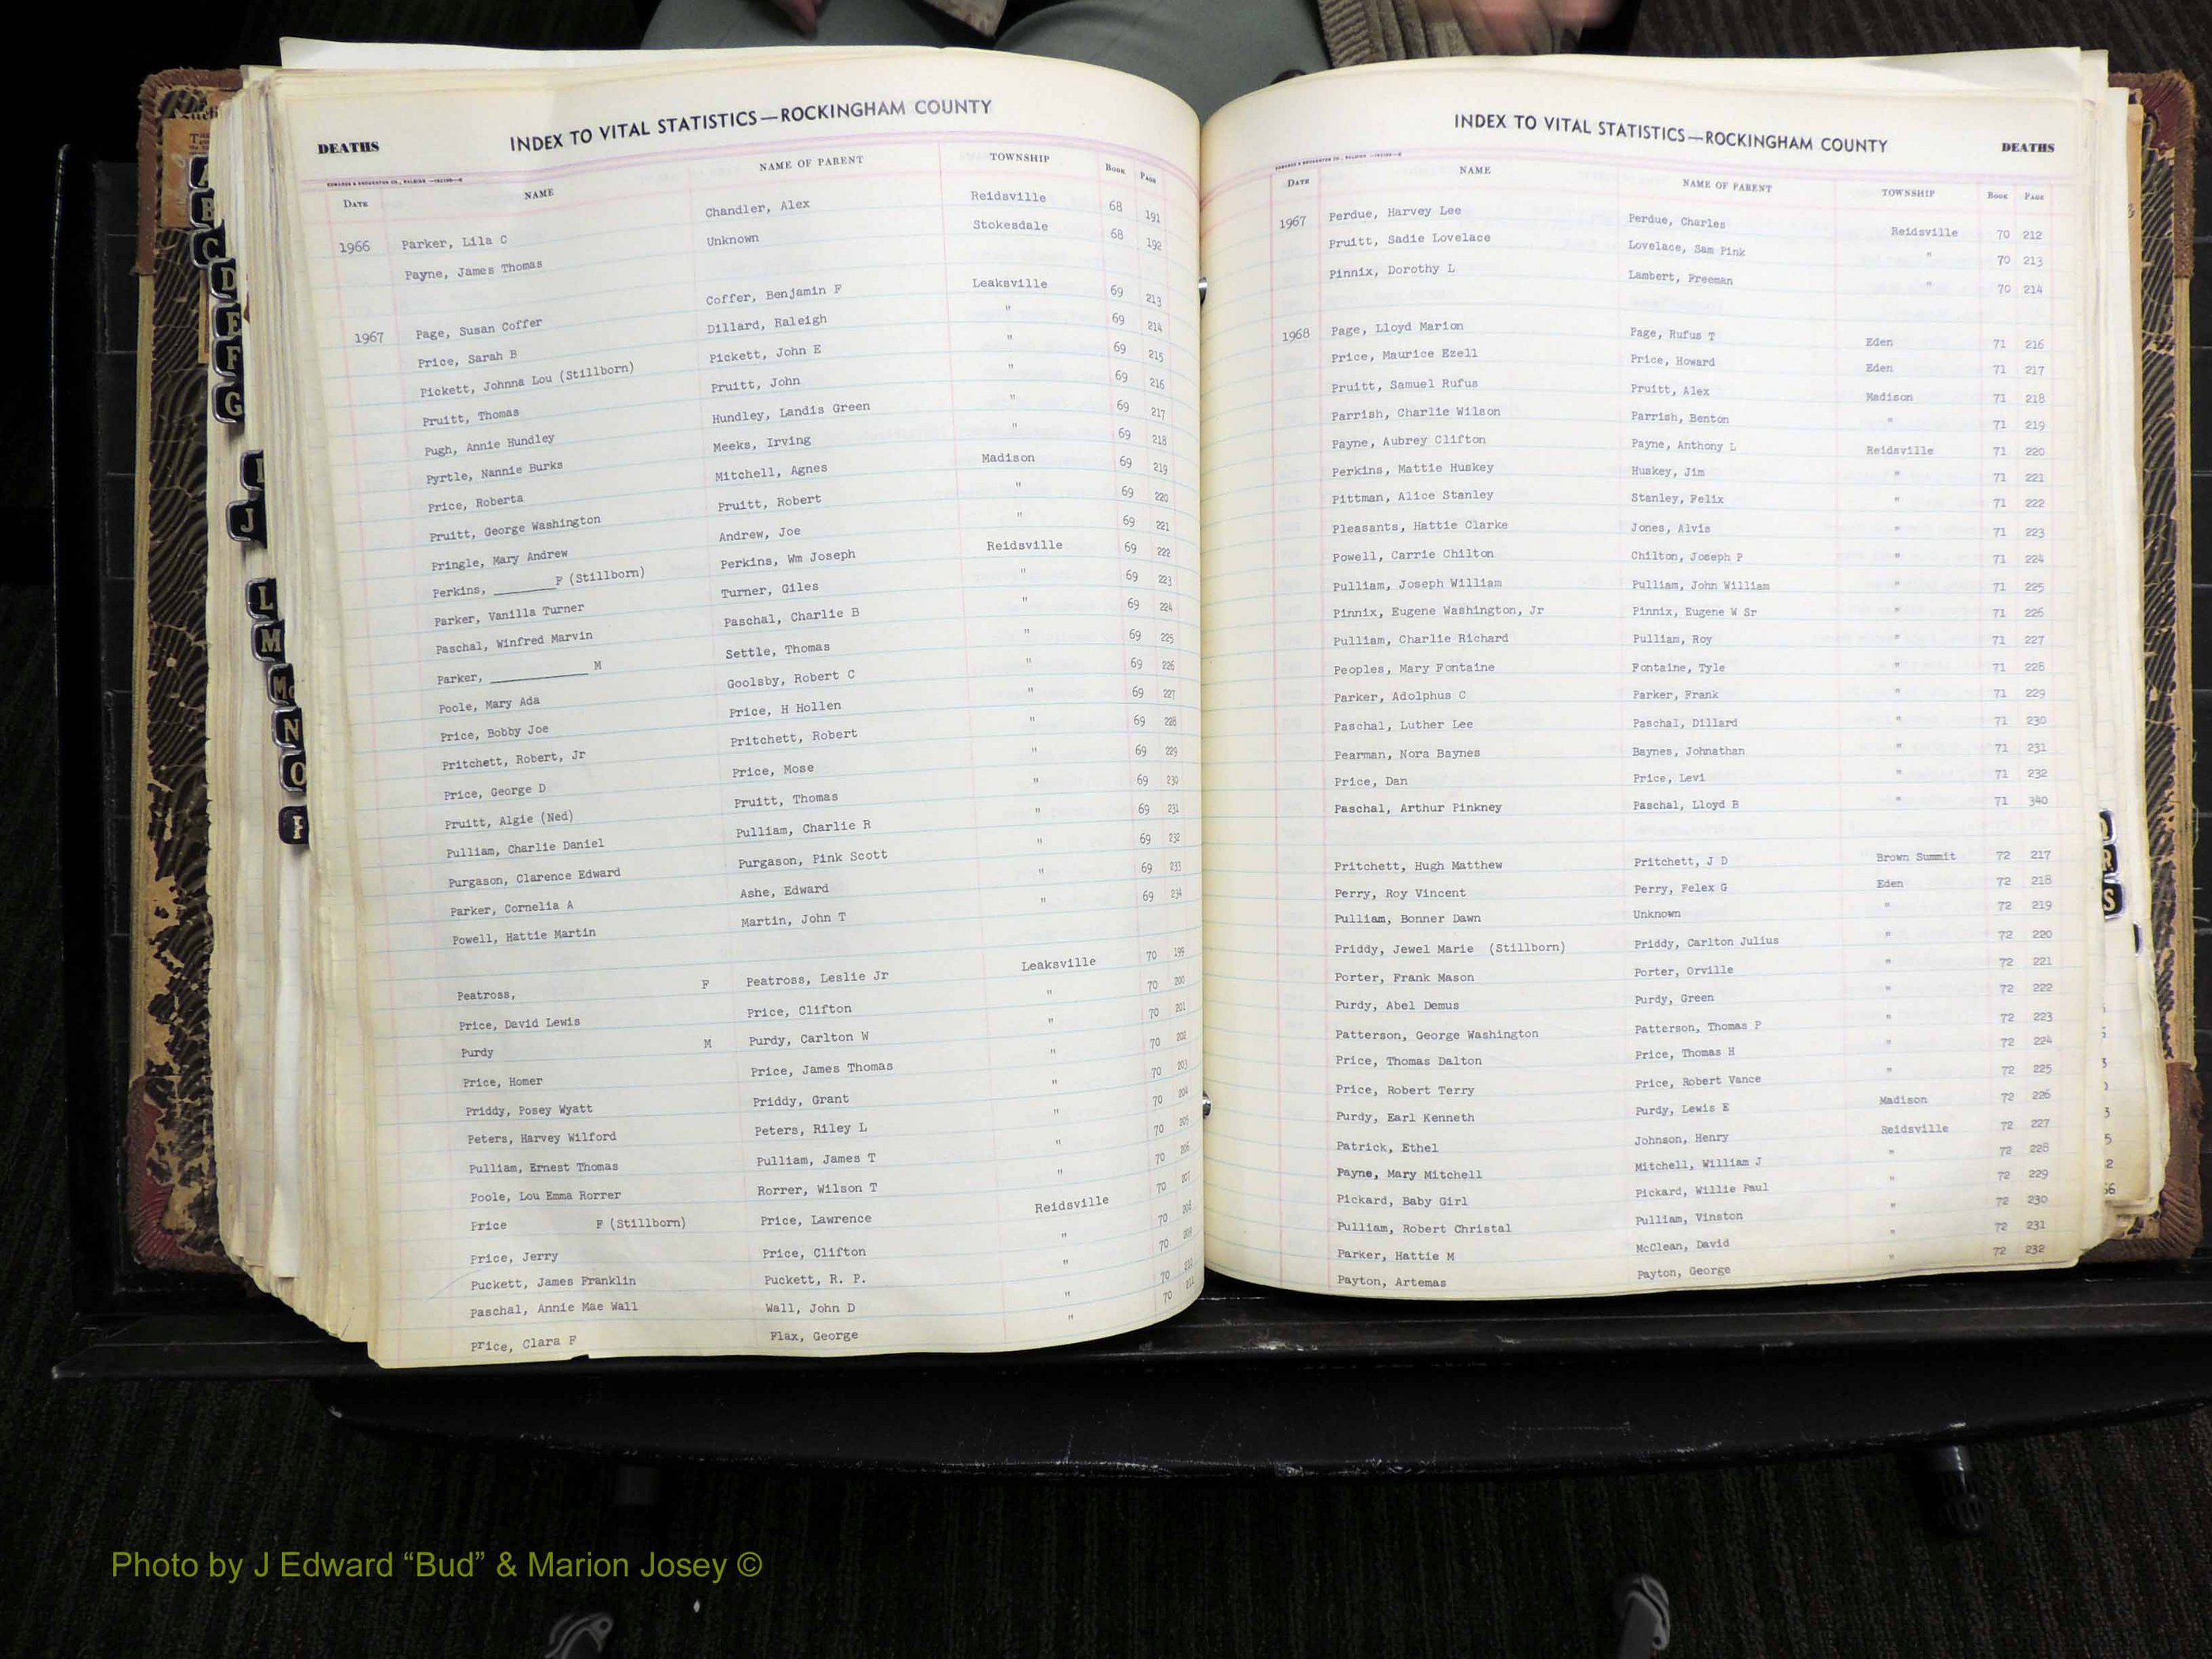 DEATHS INDEX TO VITAL STATISTICS—ROCKINGHAM COUNTY
EDWARDS & BROUGHTON CO., RALEIGH
DATE NAME NAME OF PARENT TOWNSHIP BOOK PAGE
1966 Parker, Lila C Chandler, Alex Reidsville 68 191
Payne, James Thomas Unknown Stokesdale 68 192
1967 Page, Susan Coffer Coffer, Benjamin F Leaksville 69 213
Price, Sarah B Dillard, Raleigh " 69 214
Pickett, Johnna Lou (Stillborn) Pickett, John E " 69 215
Pruitt, Thomas Pruitt, John " 69 216
Pugh, Annie Hundley Hundley, Landis Green " 69 217
Pyrtle, Nannie Burks Meeks, Irving " 69 218
Price, Roberta Mitchell, Agnes Madison 69 219
Pruitt, George Washington Pruitt, Robert " 69 220
Pringle, Mary Andrew Andrew, Joe " 69 221
Perkins, ________F (Stillborn) Perkins, Wm Joseph Reidsville 69 222
Parker, Vanilla Turner Turner, Giles " 69 223
Paschal, Winfred Marvin Paschal, Charlie B " 69 224
Parker, ____________ M Settle, Thomas " 69 225
Poole, Mary Ada Goolsby, Robert C " 69 226
Price, Bobby Joe Price, H Hollen " 69 227
Pritchett, Robert, Jr Pritchett, Robert " 69 228
Price, George D Price, Mose " 69 229
Pruitt, Algie (Ned) Pruitt, Thomas " 69 230
Pulliam, Charlie Daniel Pulliam, Charlie R " 69 231
Purgason, Clarence Edward Purgason, Pink Scott " 69 232
Parker, Cornelia A Ashe, Edward " 69 233
Powell, Hattie Martin Martin, John T " 69 234
Peatross, F Peatross, Leslie Jr Leaksville 70 199
Price, David Lewis Price, Clifton " 70 200
Purdy M Purdy, Carlton W " 70 201
Price, Homer Price, James Thomas " 70 202
Priddy, Posey Wyatt Priddy, Grant " 70 203
Peters, Harvey Wilford Peters, Riley L " 70 204
Pulliam, Ernest Thomas Pulliam, James T " 70 205
Poole, Lou Emma Rorrer Rorrer, Wilson T " 70 206
Price F (Stillborn) Price, Lawrence Reidsville 70 207
Price, Jerry Price, Clifton " 70 208
Puckett, James Franklin Puckett, R. P. " 70 209
Paschal, Annie Mae Wall Wall, John D " 70 210
Price, Clara F Flax, George " 70 211
INDEX TO VITAL STATISTICS—ROCKINGHAM COUNTY DEATHS
EDWARDS & BROUGHTON CO., RALEIGH
DATE NAME NAME OF PARENT TOWNSHIP BOOK PAGE
1967 Perdue, Harvey Lee Perdue, Charles Reidsville 70 212
Pruitt, Sadie Lovelace Lovelace, Sam Pink " 70 213
Pinnix, Dorothy L Lambert, Freeman " 70 214
1968 Page, Lloyd Marion Page, Rufus T Eden 71 216
Price, Maurice Ezell Price, Howard Eden 71 217
Pruitt, Samuel Rufus Pruitt, Alex Madison 71 218
Parrish, Charlie Wilson Parrish, Benton " 71 219
Payne, Aubrey Clifton Payne, Anthony L Reidsville 71 220
Perkins, Mattie Huskey Huskey, Jim " 71 221
Pittman, Alice Stanley Stanley, Felix " 71 222
Pleasants, Hattie Clarke Jones, Alvis " 71 223
Powell, Carrie Chilton Chilton, Joseph P " 71 224
Pulliam, Joseph William Pulliam, John William " 71 225
Pinnix, Eugene Washington, Jr Pinnix, Eugene W Sr " 71 226
Pulliam, Charlie Richard Pulliam, Roy " 71 227
Peoples, Mary Fontaine Fontaine, Tyle " 71 228
Parker, Adolphus C Parker, Frank " 71 229
Paschal, Luther Lee Paschal, Dillard " 71 230
Pearman, Nora Baynes Baynes, Johnathan " 71 231
Price, Dan Price, Levi " 71 232
Paschal, Arthur Pinkney Paschal, Lloyd B " 71 340
Pritchett, Hugh Matthew Pritchett, J D Brown Summit 72 217
Perry, Roy Vincent Perry, Felex G Eden 72 218
Pulliam, Bonner Dawn Unknown " 72 219
Priddy, Jewel Marie (Stillborn) Priddy, Carlton Julius " 72 220
Porter, Frank Mason Porter, Orville " 72 221
Purdy, Abel Demus Purdy, Green " 72 222
Patterson, George Washington Patterson, Thomas P " 72 223
Price, Thomas Dalton Price, Thomas H " 72 224
Price, Robert Terry Price, Robert Vance " 72 225
Purdy, Earl Kenneth Purdy, Lewis E Madison 72 226
Patrick, Ethel Johnson, Henry Reidsville 72 227
Payne, Mary Mitchell Mitchell, William J " 72 228
Pickard, Baby Girl Pickard, Willie Paul " 72 229
Pulliam, Robert Christal Pulliam, Vinston " 72 230
Parker, Hattie M McClean, David " 72 231
Payton, Artemas Payton, George " 72 232
A
B
C
D
E
F
G
I
J
L
M
Mc
N
O
P
R
S
Photo by J Edward “Bud” & Marion Josey ©